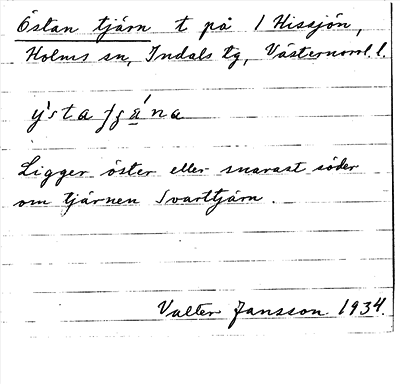 Östan tjärn t på 1 Hissjön,
Holms sn, Indals tg, Västernorrl. l.
Ligger öster eller snarast söder
om tjärnen Svarttjärn.
Valter Jansson 1934.